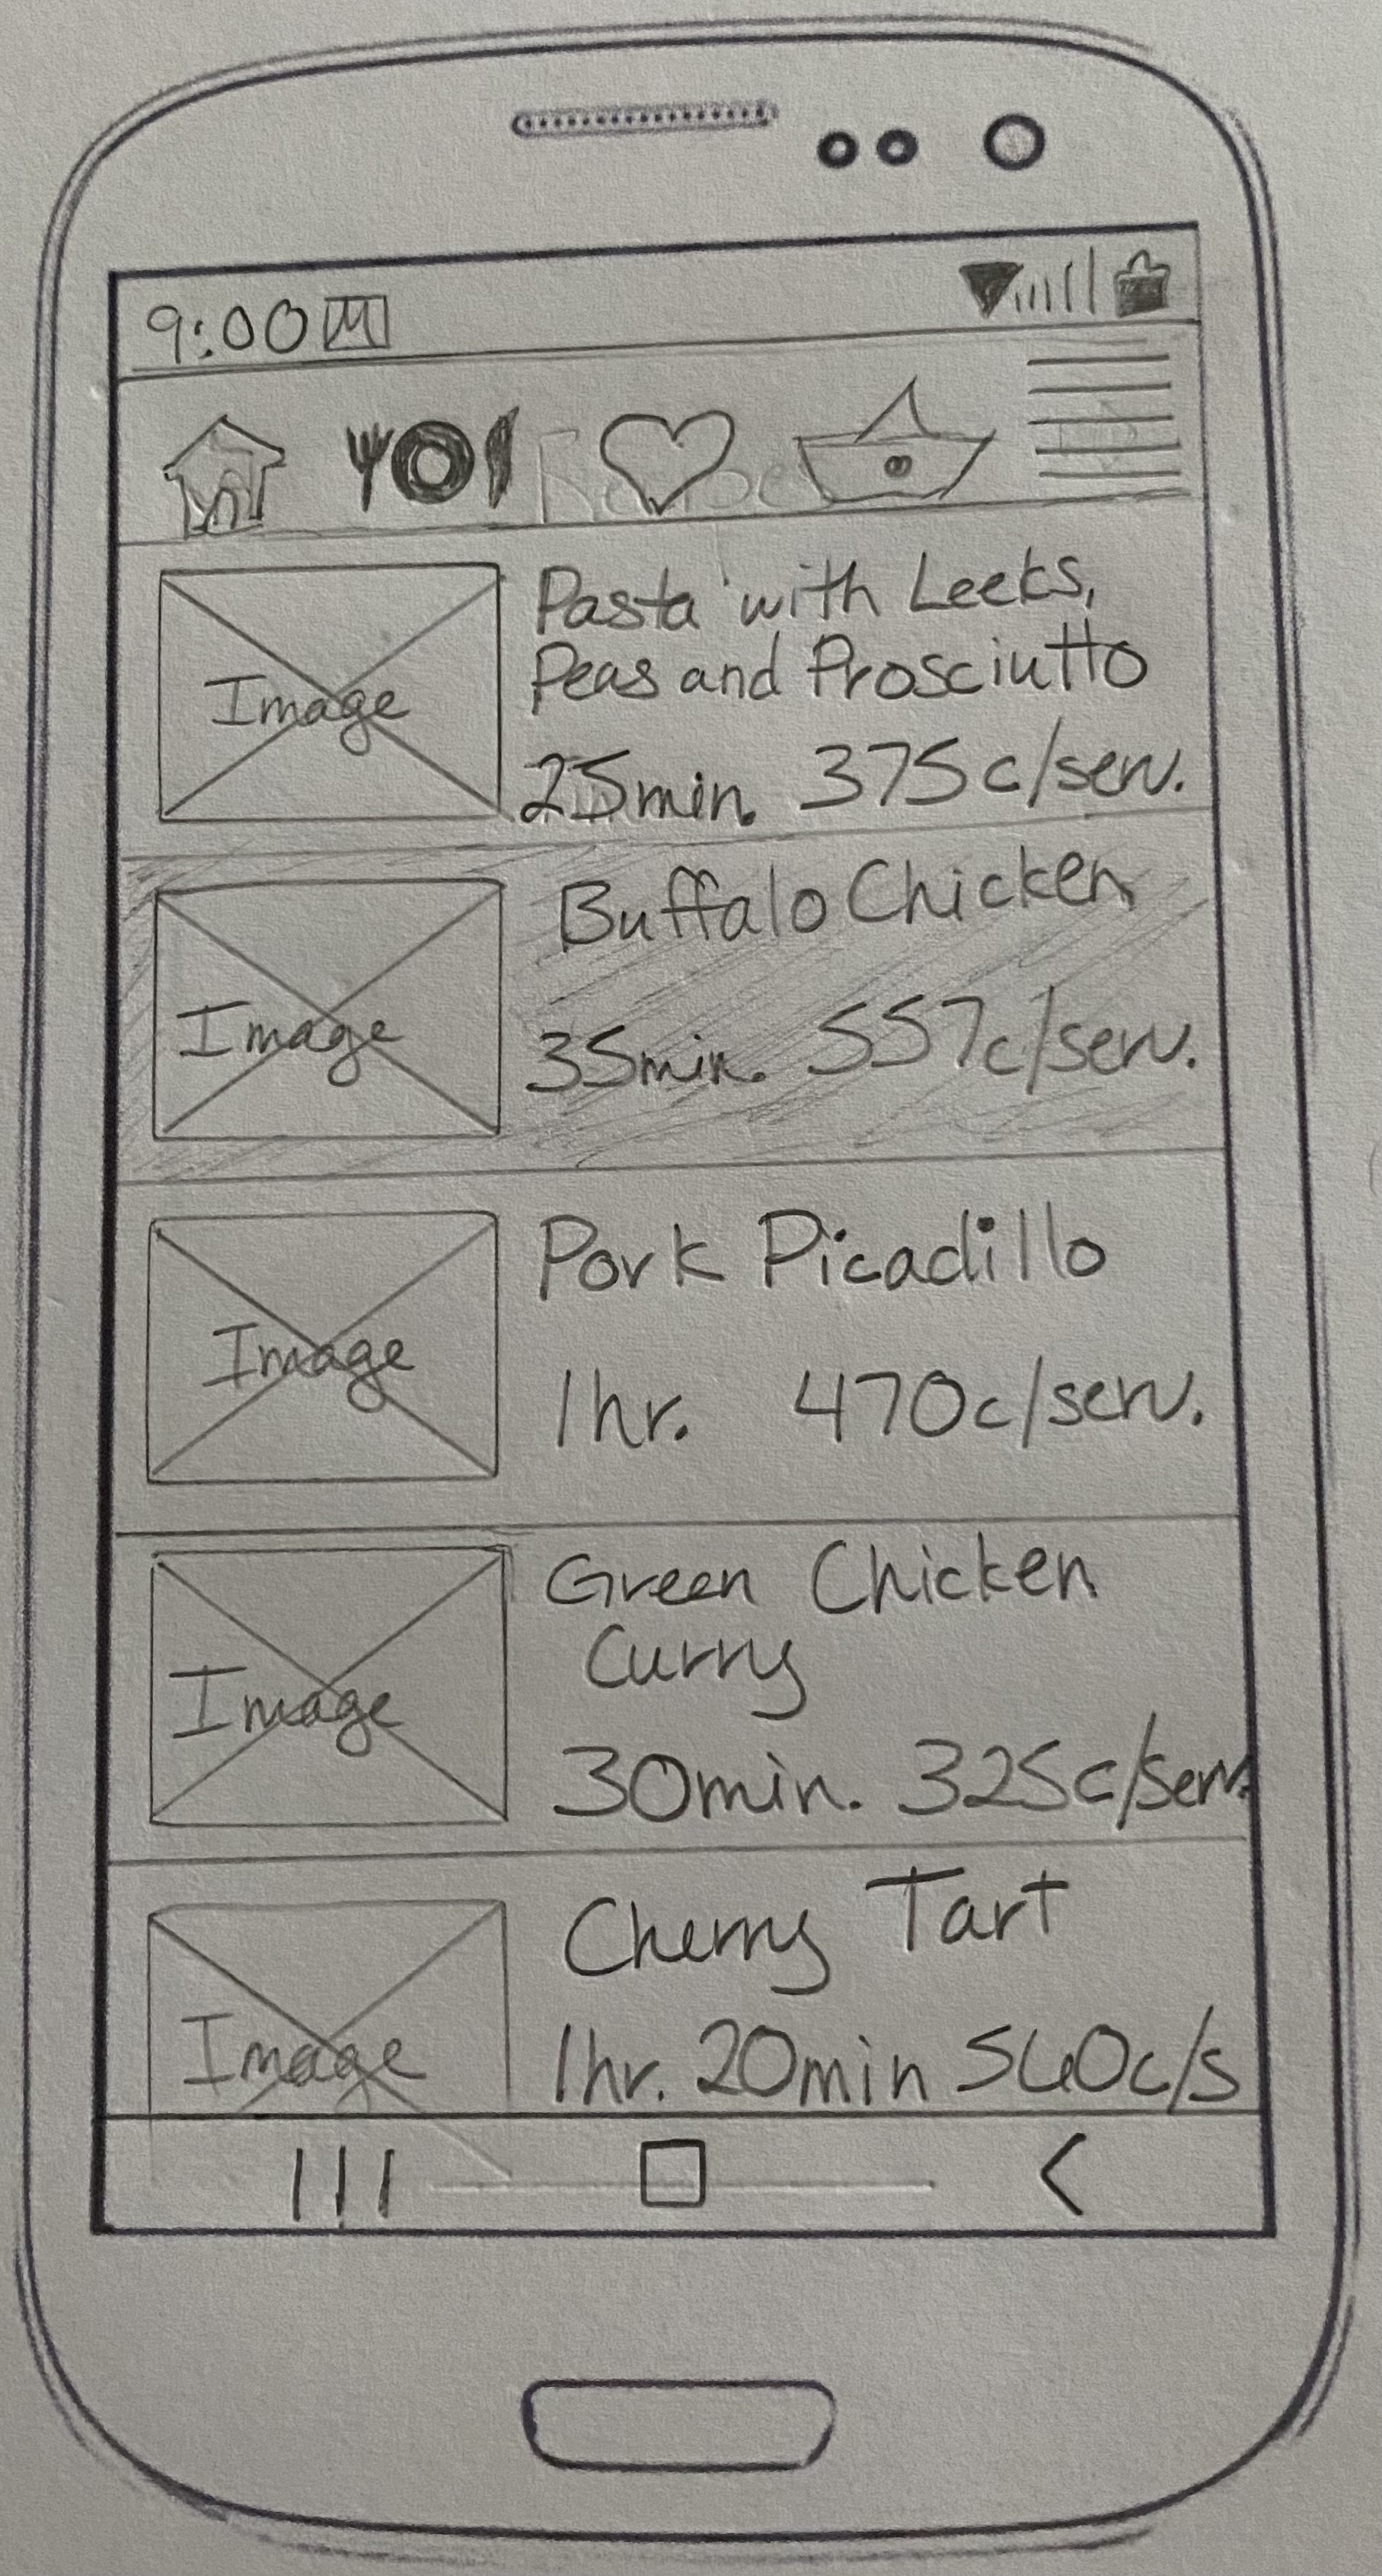 9:00 M
Image
Pasta with Leeks,
Peas and Prosciutto
25min. 375c/serv.
Image
Buffalo Chicken
35min. 557c/serv.
Image
Pork Picadillo
1hr. 470c/serv.
Image
Green Chicken
Curry
30min. 325c/serv.
Image
Cherry Tart
1hr. 20min 560c/s